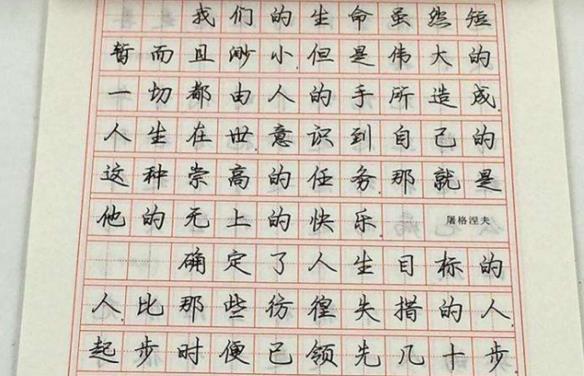 我们的生命虽然短
暂而且渺小但是伟大的
一切都由人的手所造成
人生在世意识到自己的
这种崇高的任务那就是
他的无上的快乐 屠格涅夫
确定了人生目标的
人,比那些彷徨失措的人
起步时便已领先几十步